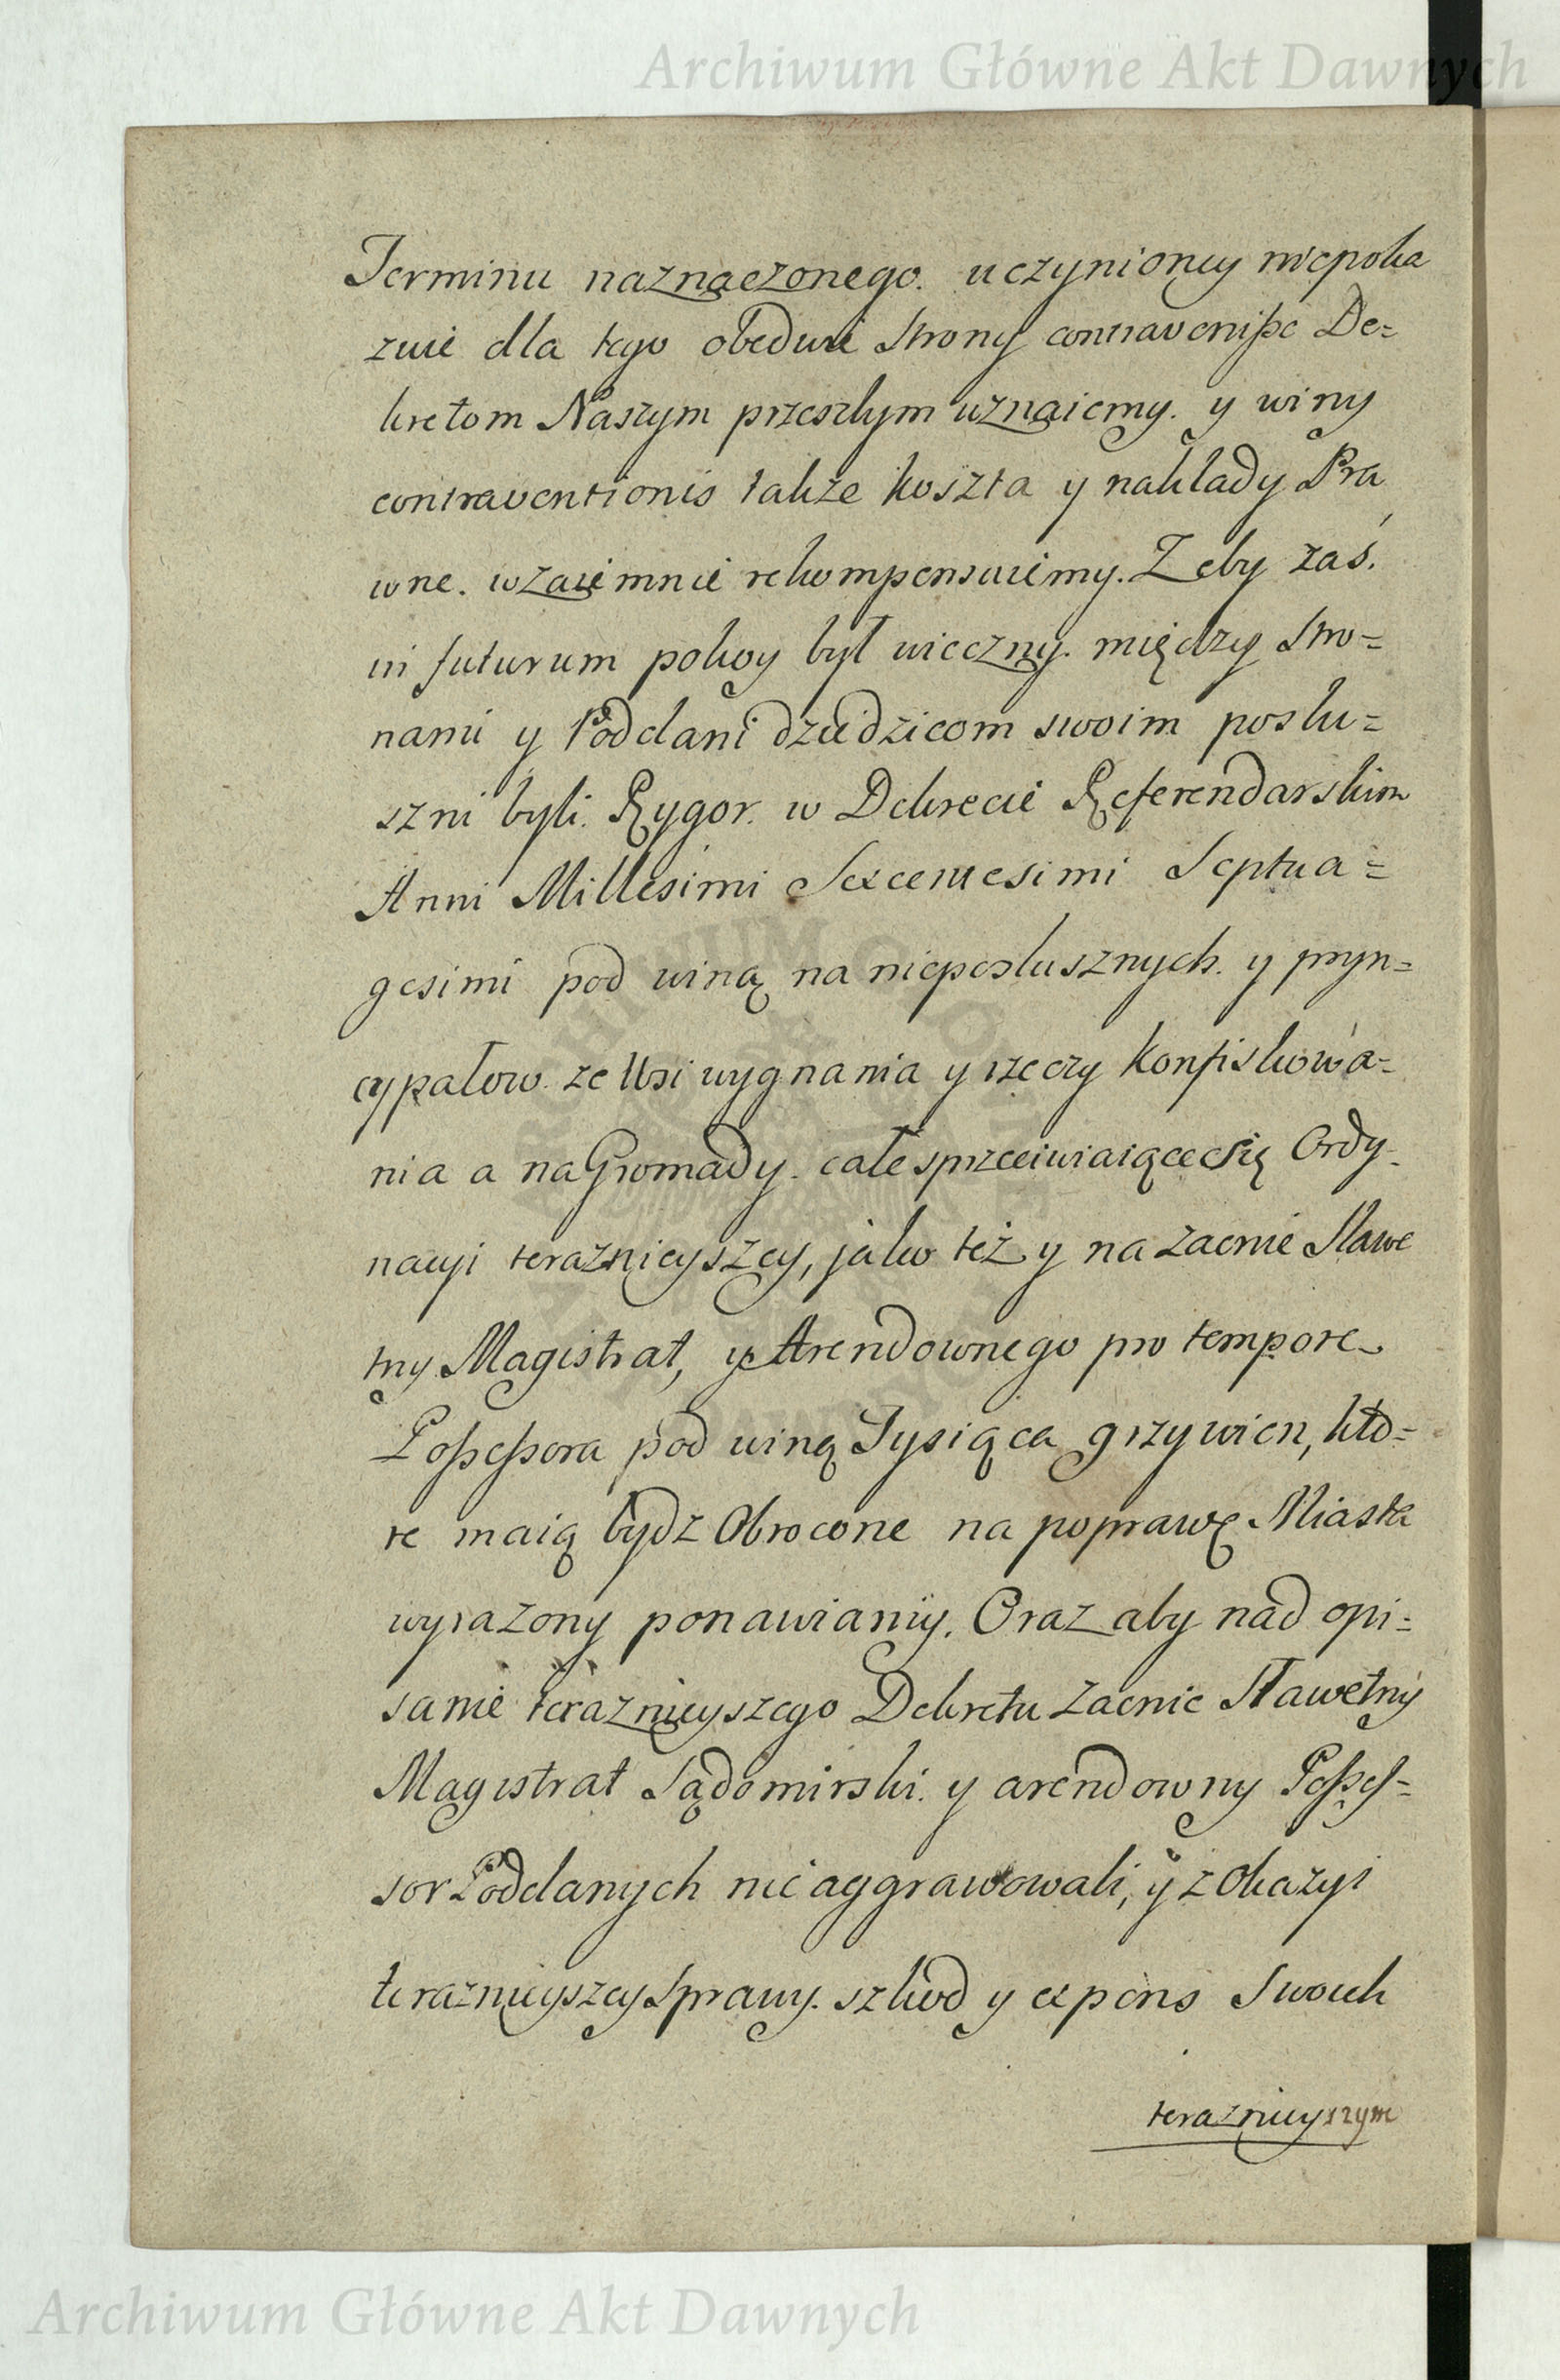 Archiwum Główne Akt Dawnych
Terminu naznaczonego. uczynioney niepoka
zuie dla tego obedwie Strony contravenisse De=
kretom Naszym przeszłym uznaiemy. y winy
contraventionis także koszta y nakłady Pra
wne. wzaiemnie rekompensuiemy. Zeby zaś.
in futurum pokoy był wieczny. między Stro=
nami y Poddani dziedzicom swoim posłu=
szni byli. Rygor. w Dekrecie Referendarskim
Anni Millesimi Sexcentesimi Septua=
gesimi pod winą na nieposłusznych. y pryn=
cypałow. ze Wsi wygnania y rzeczy konfiskowa=
nia a na Gromady. całe sprzeciwiaiące się Ordy-
nacyi teraznieyszey, jako też y na zacnie Sławe
tny Magistrat, y Arendownego pro tempore
Possessora pod winą Tysiąca grzywien, kto=
re maią bydz Obrocone na poprawę Miasta
wyrazony ponawiamy. Oraz aby nad opi=
sanie teraznieyszego Dekretu zacnie Sławetny
Magistrat Sądomirski. y arendowny Posses=
sor Poddanych nie aggrawowali, y z Okazyi
teraznieyszey Sprawy. szkod y expens Swoich
teraznieyszym
Archiwum Główne Akt Dawnych